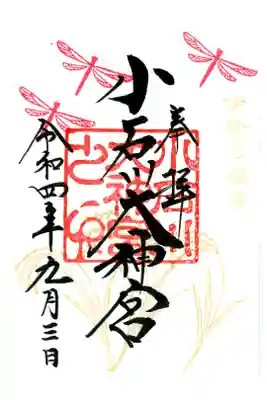 奉拝
小石川大神宮
令和四年九月三日